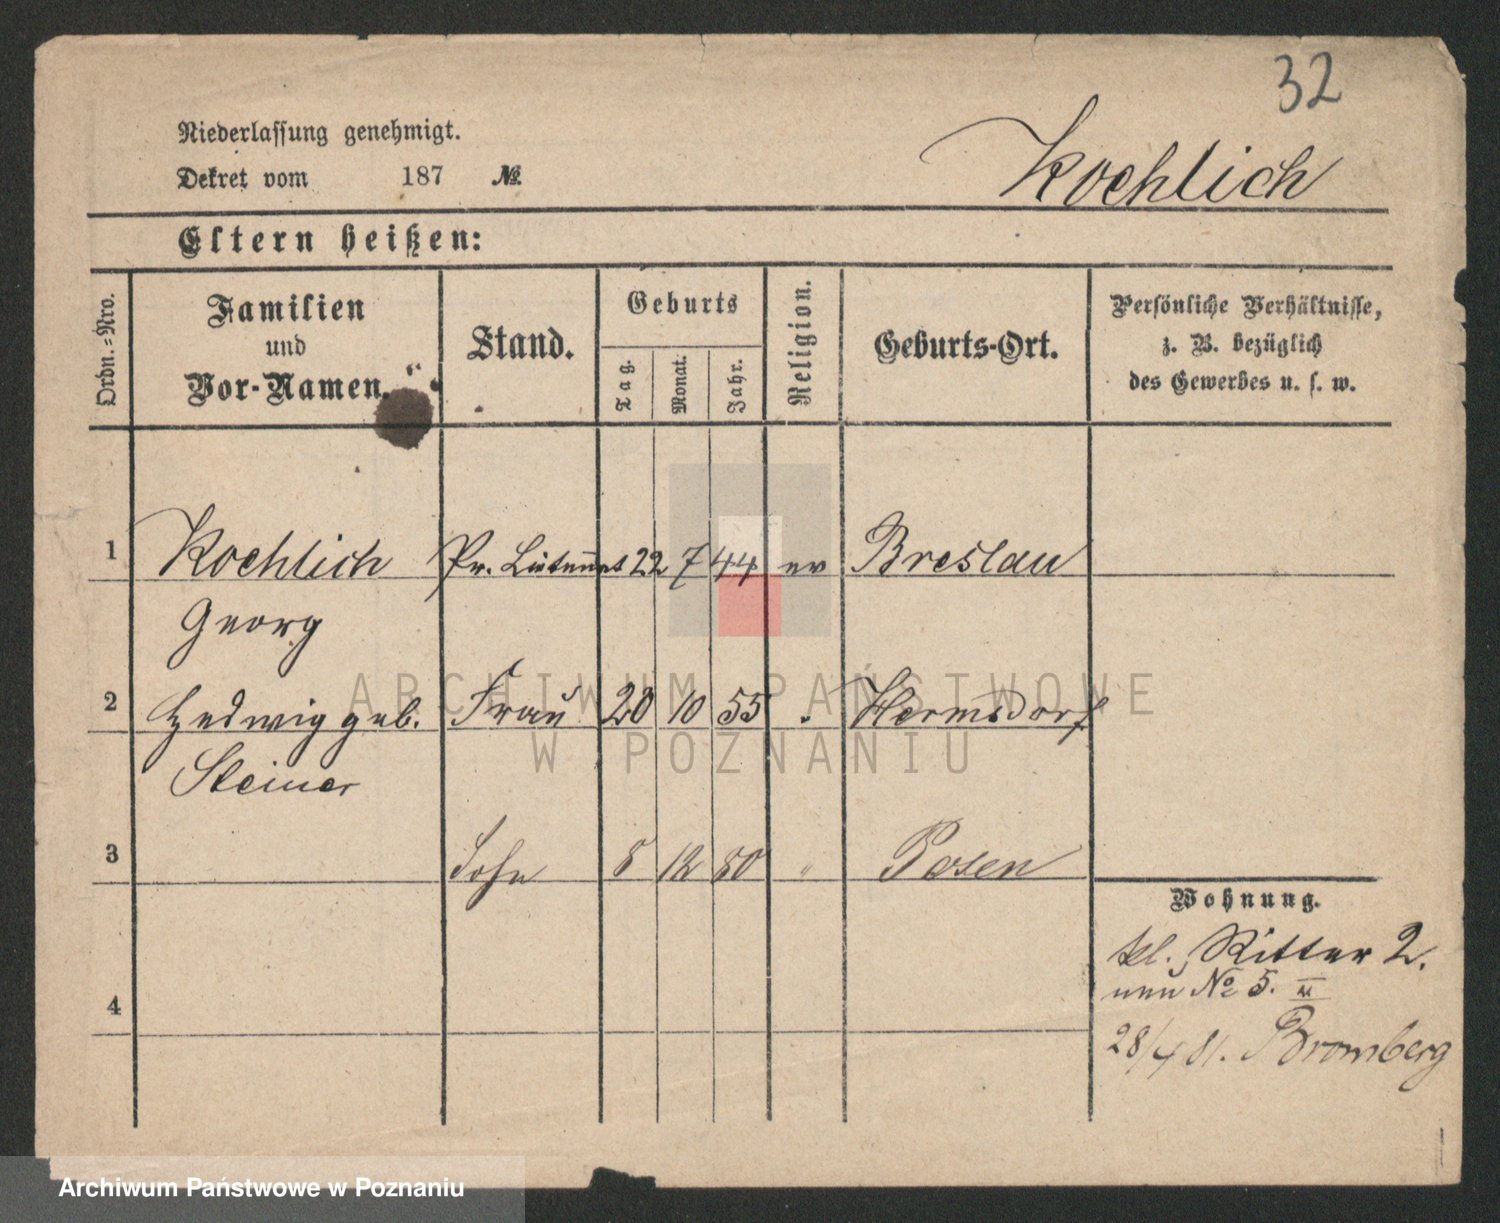 32
Niederlassung genehmigt.
Dekret vom 187 №
Kochlich
Eltern heißen:
Ordn.=Nro.
Familien und Vor-Namen.
Stand.
Geburts
Tag.
Monat.
Jahr.
Religion.
Geburts-Ort.
Persönliche Verhältnisse,
z. B. bezüglich
des Gewerbes u. s. w.
1 Kochlich Pr. Lieutenant 22 7 44 ev Breslau
Georg
2 Hedwig geb. Frau 20 10 55 Hermsdorf
Steiner
3 Sohn 8 12 80 " Posen
4
Wohnung.
kl. Ritter 2.
neu № 5. II
28/4 81. Bromberg
ARCHIWUM PAŃSTWOWE
W POZNANIU
Archiwum Państwowe w Poznaniu